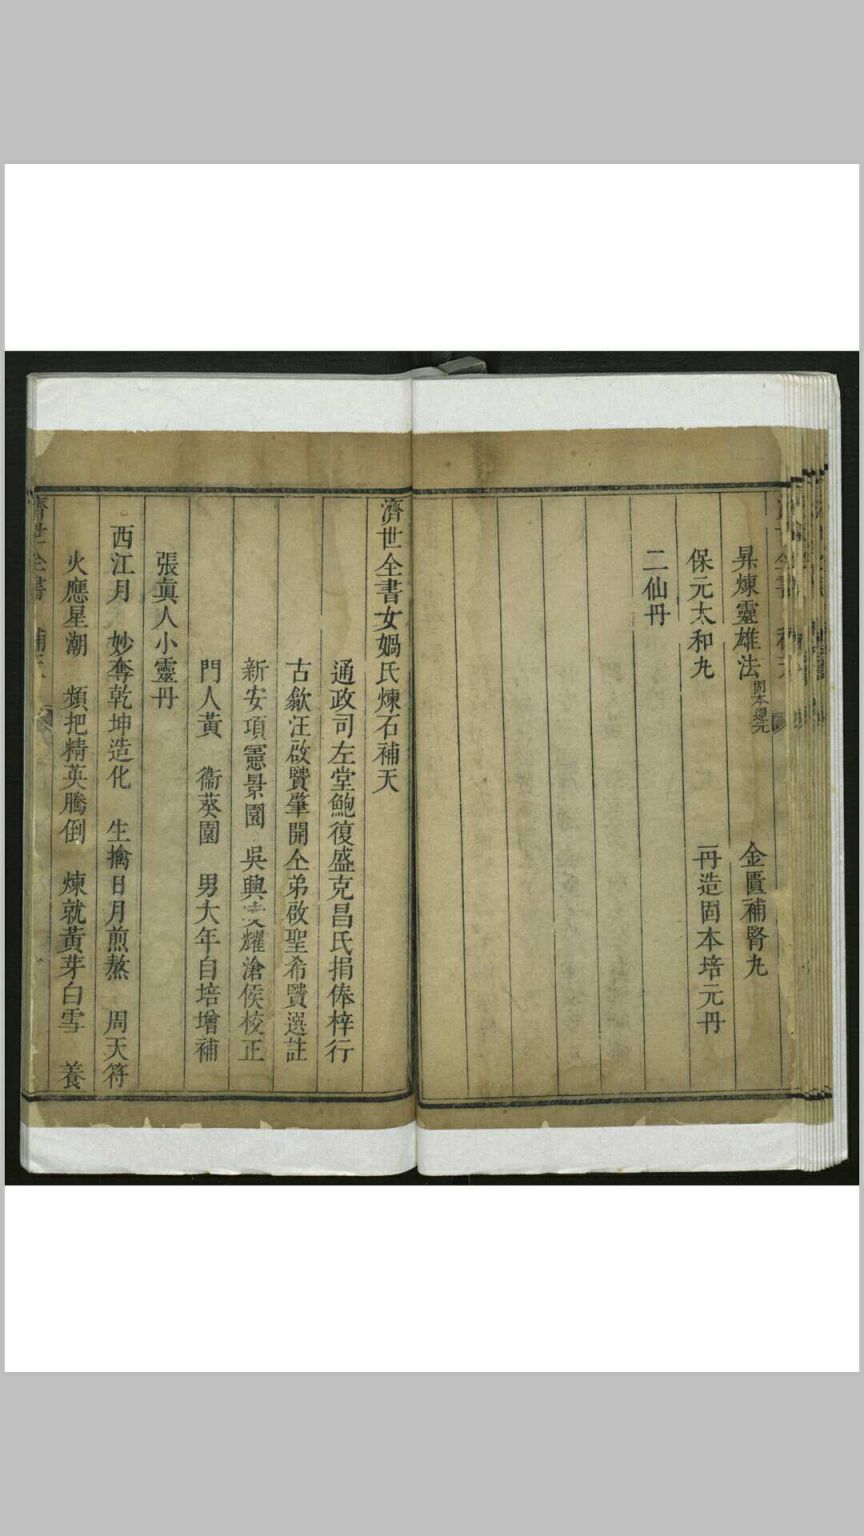 昇煉靈雄法 固本還元 金匱補腎丸
保元太和丸 一丹造固本培元丹
二仙丹
濟世全書女媧氏煉石補天
通政司左堂鮑復盛克昌氏捐俸梓行
古歙汪啟贒肇開仝弟啟聖希贒選註
新安項憲景園 吳興 耀滄侯校正
門人黃 衞葵園 男大年自培增補
張眞人小靈丹
西江月 妙奪乾坤造化 生擒日月煎熬 周天符
火應星潮 頻把精英騰倒 煉就黃芽白雪 養
濟世全書 補天